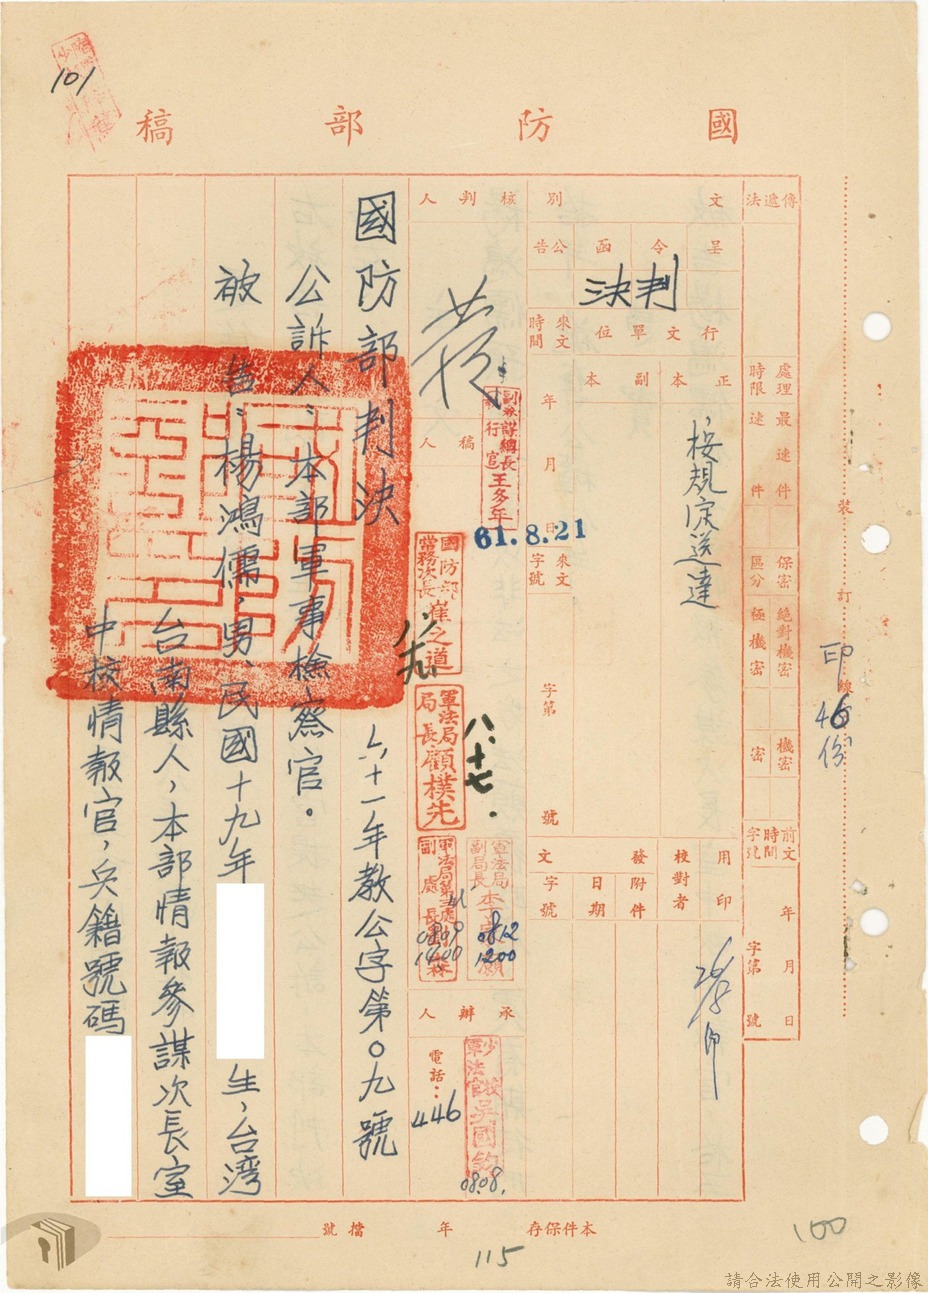 101
國防部稿
傳遞法
處理時限
最速件
速件
保密區分
絕對機密
極機密
機密
密
前文時間字號
年月日
字第號
文別
呈
令
函
公告
判決
行文單位
正本
副本
按規定送達
來文時間
年月日
來文字號
字第號
用印
校對者
發文
附件
日期
字號
印
核判人
副參謀總長兼執行官王多年
61.8.21
稿人
國防部常務次長崔之道
軍法局局長顧樸先
八.十七.
軍法局副局長
0812
1200
軍法局第
副處長
0809
1400
承辦人
少校軍法官吳國鈞
0808.
電話:446
國防部判決
六十一年教公字第〇九號
公訴人:本部軍事檢察官。
被告:楊鴻儒,男、民國十九年
生,台湾
台南縣人,本部情報參謀次長室
中校情報官,兵籍號碼
裝訂線
印46份
本件保存年檔號
115
100
請合法使用公開之影像